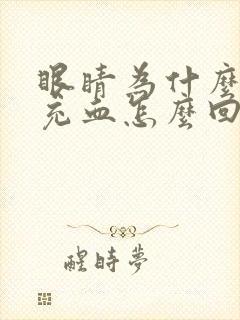 眼睛為什麼
充血怎麼回
醒時夢